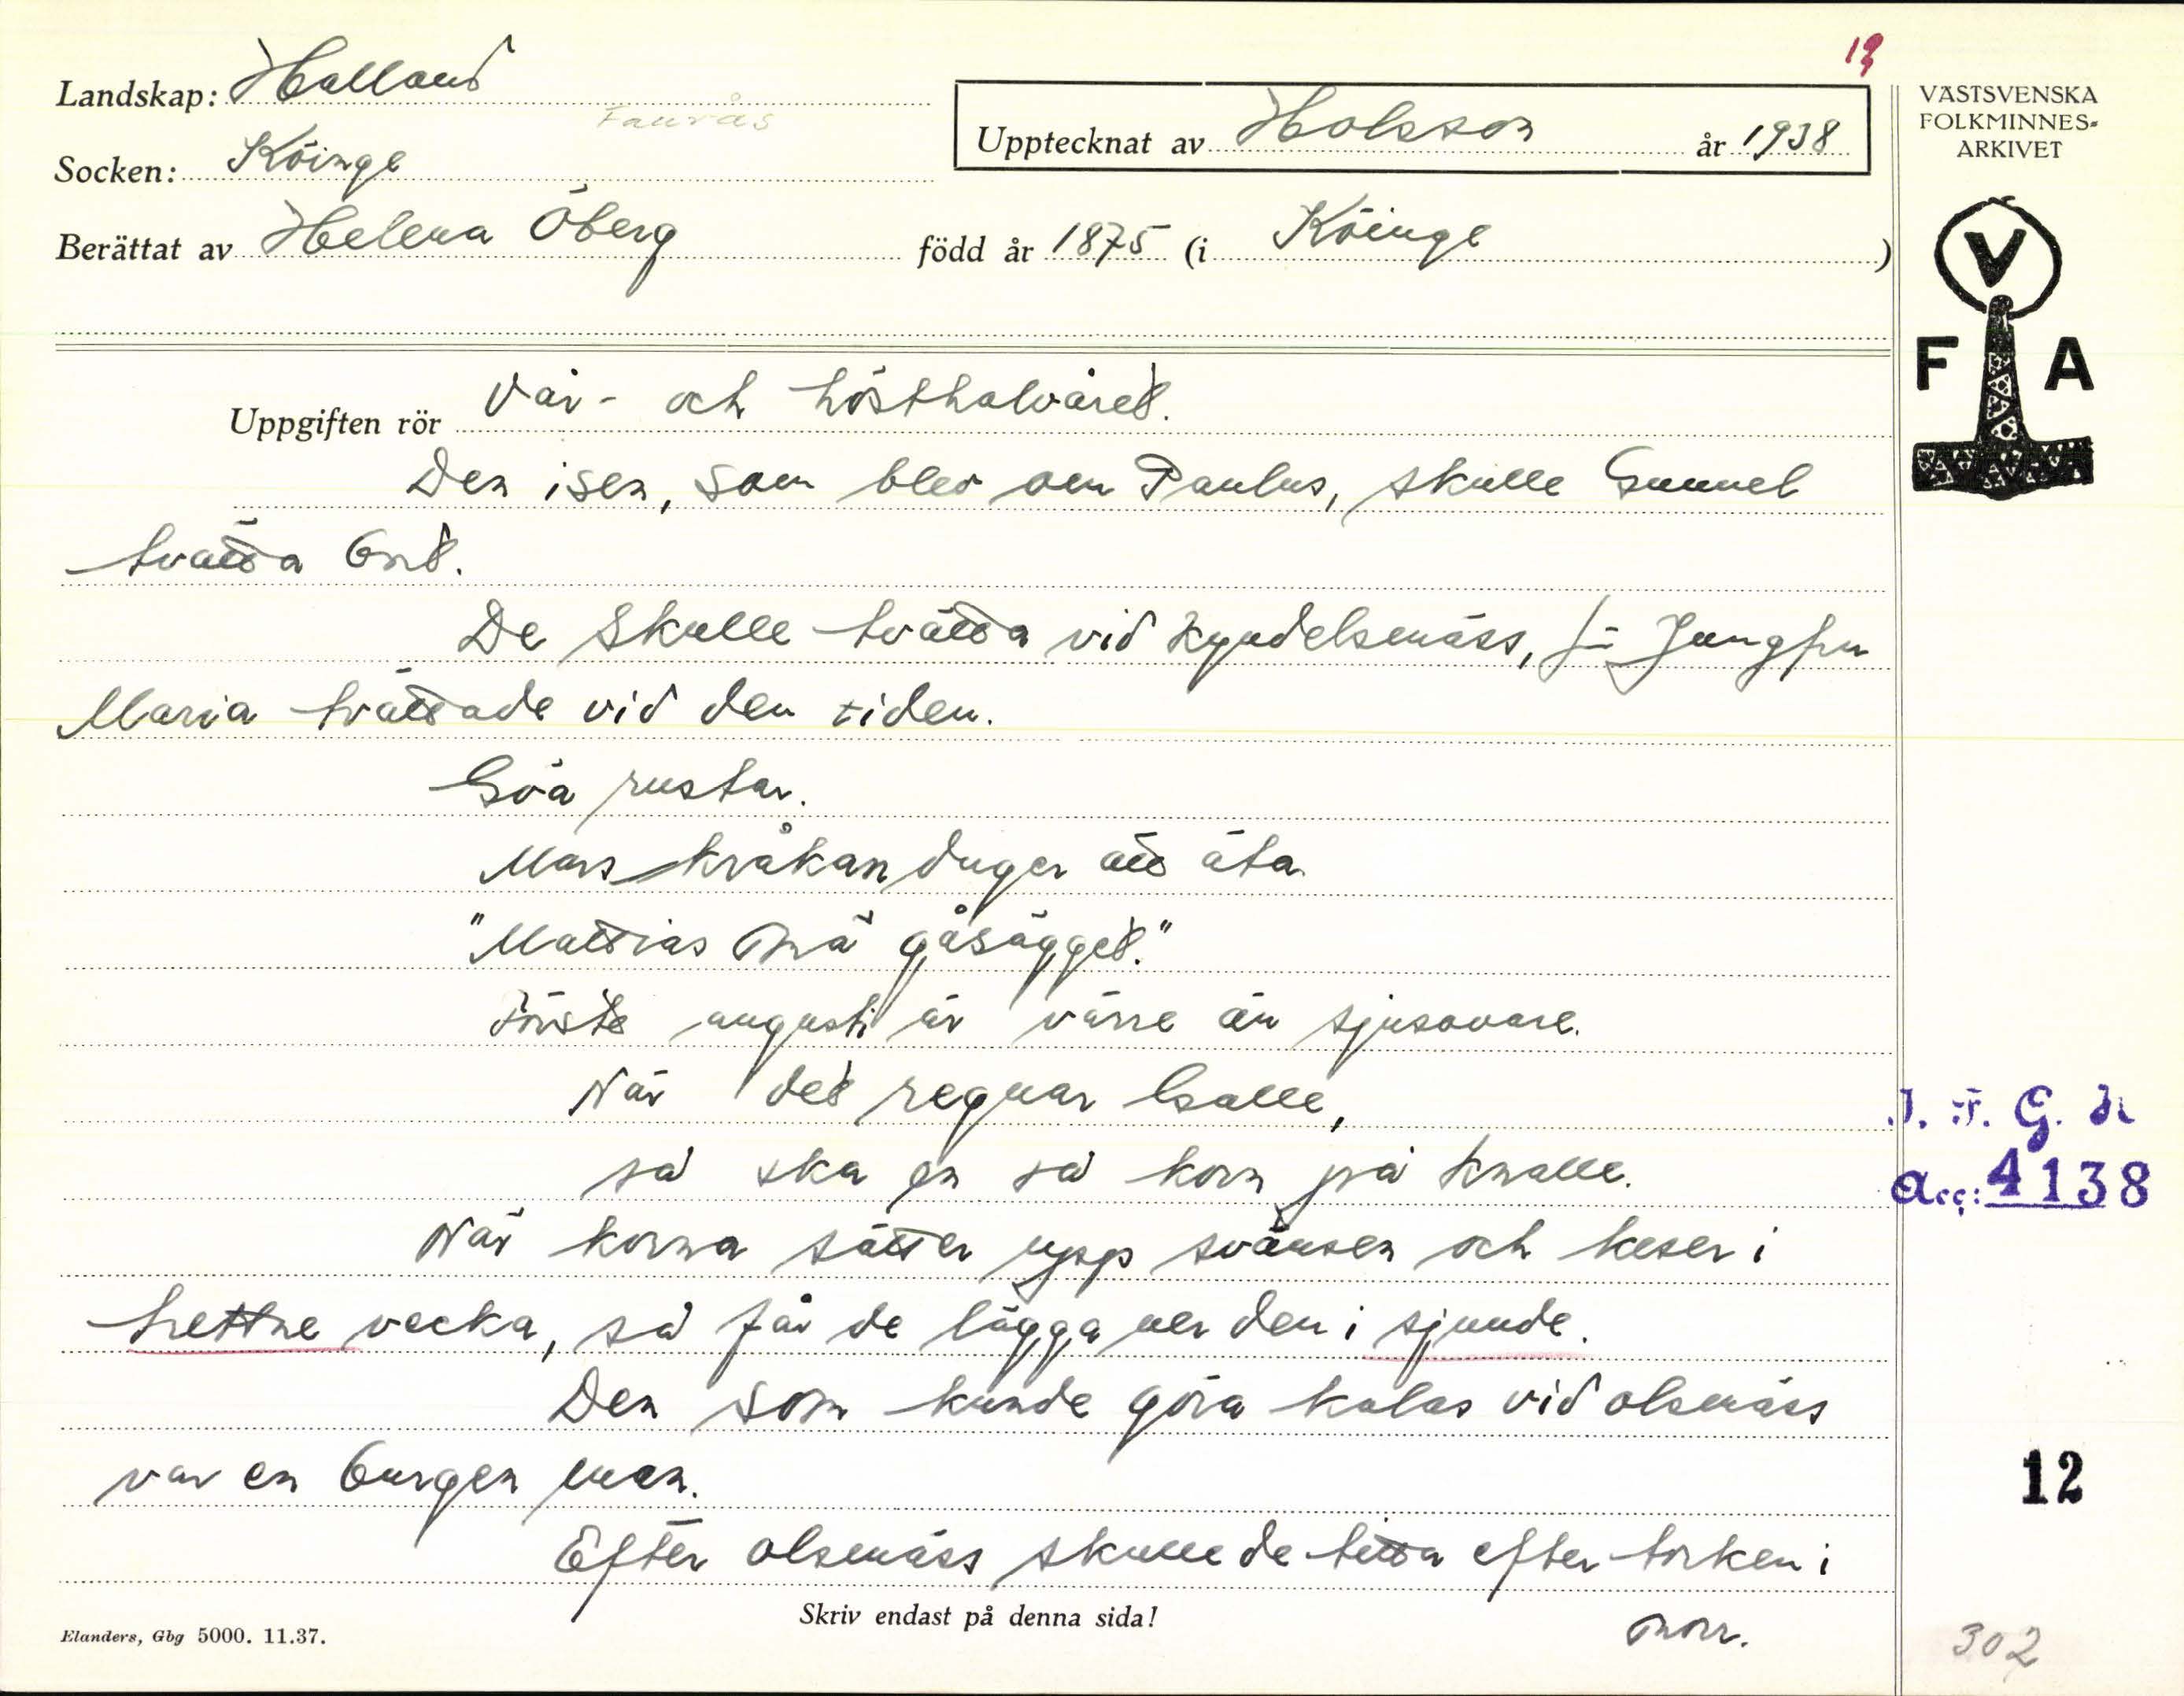 19
Landskap: Halland
Faurås
Upptecknat av Holsson år 1938
Socken: Köinge
Berättat av Helena Öberg född år 1875 (i Köinge)
VÄSTSVENSKA
FOLKMINNES-
ARKIVET
V
F A
Uppgiften rör Vår- och hösthalvåret.
Den isen, som blev om Paulus, skulle Gunnel
tvätta bort.
De skulle tvätta vid kyndelsmäss, för Jungfru
Maria tvättade vid den tiden.
Göa rustar.
Marskråkan duger att äta.
"Mattias mä gåsägget."
Förste augusti är värre än sjusovare.
När det regnar Galle,
så ska en så korn på knalle.
När korna sätter upp svansen och keser i
trettne vecka, så får de lägga ner den i sjunde.
Den som kunde göra kalas vid olsmäss
var en burgen man.
Efter olsmäss skulle de titta efter torken i
norr.
I. F. G. H
Acc: 4138
12
Skriv endast på denna sida!
Elanders, Gbg 5000. 11.37.
302